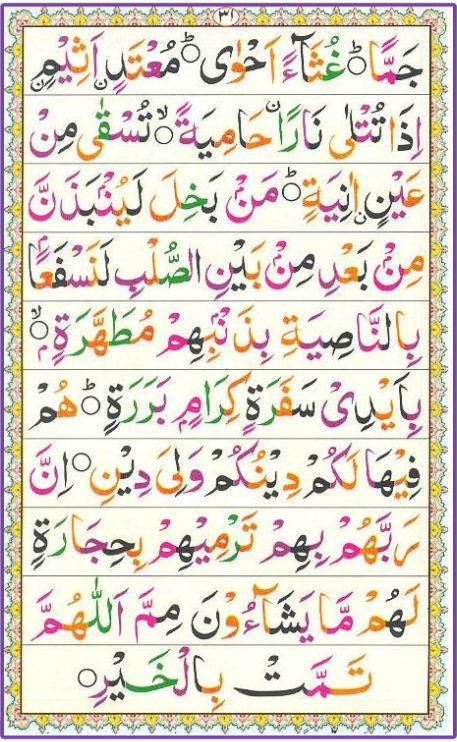 ٣١
جَمًّا ؕ غُثَآءً اَحْوٰی ؕ مُعْتَدٍ اَثِیْمٍ
اِذَا تُتْلٰی نَارًا حَامِیَةً ۙ تُسْقٰی مِنْ
عَیْنٍ اٰنِیَةٍ ؕ مَنْۢ بَخِلَ لَیُنْۢبَذَنَّ
مِنْۢ بَعْدِ مِنْۢ بَیْنِ الصُّلْبِ لَنَسْفَعًۢا
بِالنَّاصِیَةِ بِذَنْۢبِهِمْ مُطَهَّرَةٍۭ ۙ
بِاَیْدِیْ سَفَرَةٍ كِرَامٍۭ بَرَرَةٍ ؕ هُمْ
فِیْهَا لَكُمْ دِیْنُكُمْ وَلِیَ دِیْنِ ۝ اِنَّ
رَبَّهُمْ بِهِمْ تَرْمِیْهِمْ بِحِجَارَةٍ
لَهُمْ مَّا یَشَآءُوْنَ مِمَّ اَللّٰهُمَّ
تَمَّتْ بِالْخَیْرِ ۝